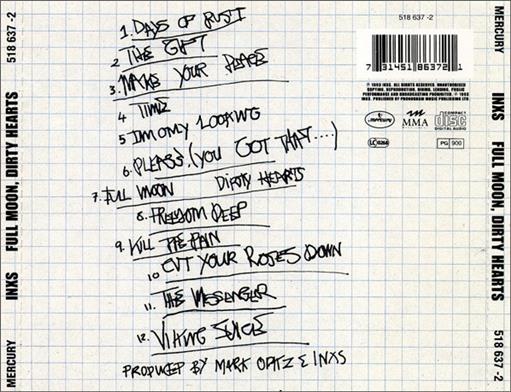 518 637 -2
MERCURY
INXS
FULL MOON, DIRTY HEARTS
518 637 -2
MERCURY
INXS
FULL MOON, DIRTY HEARTS
518 637 -2
7 31451 86372 1
1. DAYS OF RUST
2 THE GIFT
3. MAKE YOUR PEACE
4 TIME
5 IM ONLY LOOKING
6. PLEASE. (YOU GOT THAT....)
7. FULL MOON DIRTY HEARTS
8. FREEDOM DEEP
9. KILL THE PAIN
10 CUT YOUR ROSES DOWN
11. THE MESSENGER
12. VIKING JUICE
PRODUCED BY MARK OPITZ & INXS
℗ 1993 INXS. ALL RIGHTS RESERVED. UNAUTHORISED
COPYING, REPRODUCTION, HIRING, LENDING, PUBLIC
PERFORMANCE AND BROADCASTING PROHIBITED. © 1993
INXS. PUBLISHED BY POLYGRAM MUSIC PUBLISHING LTD.
mercury
MMA
COMPACT
disc
DIGITAL AUDIO
LC 0268
PG 900